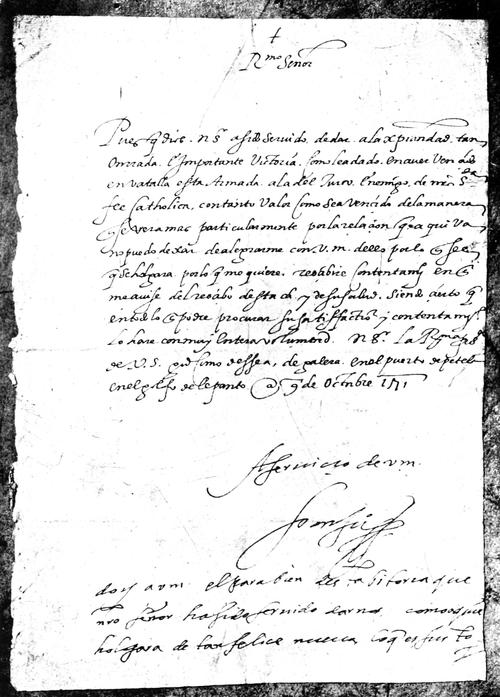 +
Rmo Señor
Pues q̃ dios. nr̃o sr̃ a sido servido. de dar. a la xpiandad. tan
Onrrada. e Importante Victoria. Como le a dado. en aver Vençido
en vatalla esta Armada. a la del Turco. Enemigo. de nr̃a sta
fee Catholica, con tanto Valor Como sea vencido de la manera
q̃ se vera mas particularmente por la relaçion que a qui va
no puedo dexar. de alegrarme con. V. m. dello por lo q̃ se
q̃ se holgara por lo q̃ me quiere. resçibire Contentamto en q̃
me avise del resçibo desta y de su salud. Siendo çierto q̃
en todo lo q̃ podre procurar su satisffaction y contentamto
Lo hare con muy Entera voluntad. nr̃o sr̃. La Rma
de V. S. como dessea, de galera. en el puerto de petela
en el golfo de lepanto @ 9 de Octubre 1571
A serviçio de v m.
doy a vm el para bien desta bitoria que
nro señor ha sido servido darnos como
holgara de tan felice nueva